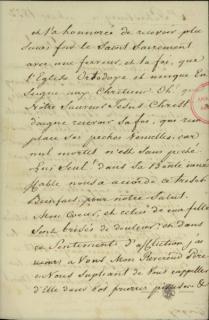 et l'a honorée de recevoir plu
sieurs fois le Saint Sacrement
avec une ferveur, et la foi, que
l'Eglise Ortodoxe et unique En
seigne aux Chretiens Oh! que
Nôtre Sauveur Jesus Christ
daigne recevoir sa foi, qui rem
place ses pechés venielles, car
nul mortel n'est sans peché
Lui Seul! dans Sa Bonté inné
ffable nous a accordé ce
Bienfait, pour nôtre Salut.
Mon Coeur, et celui de ma fille
Sont brisés de douleur, en dans
ce Sentiments d'affliction j'ai
à Vous Mon Reverend Père
en Vous Supliant de Vous rappeller
d'Elle dans Vos prieres &